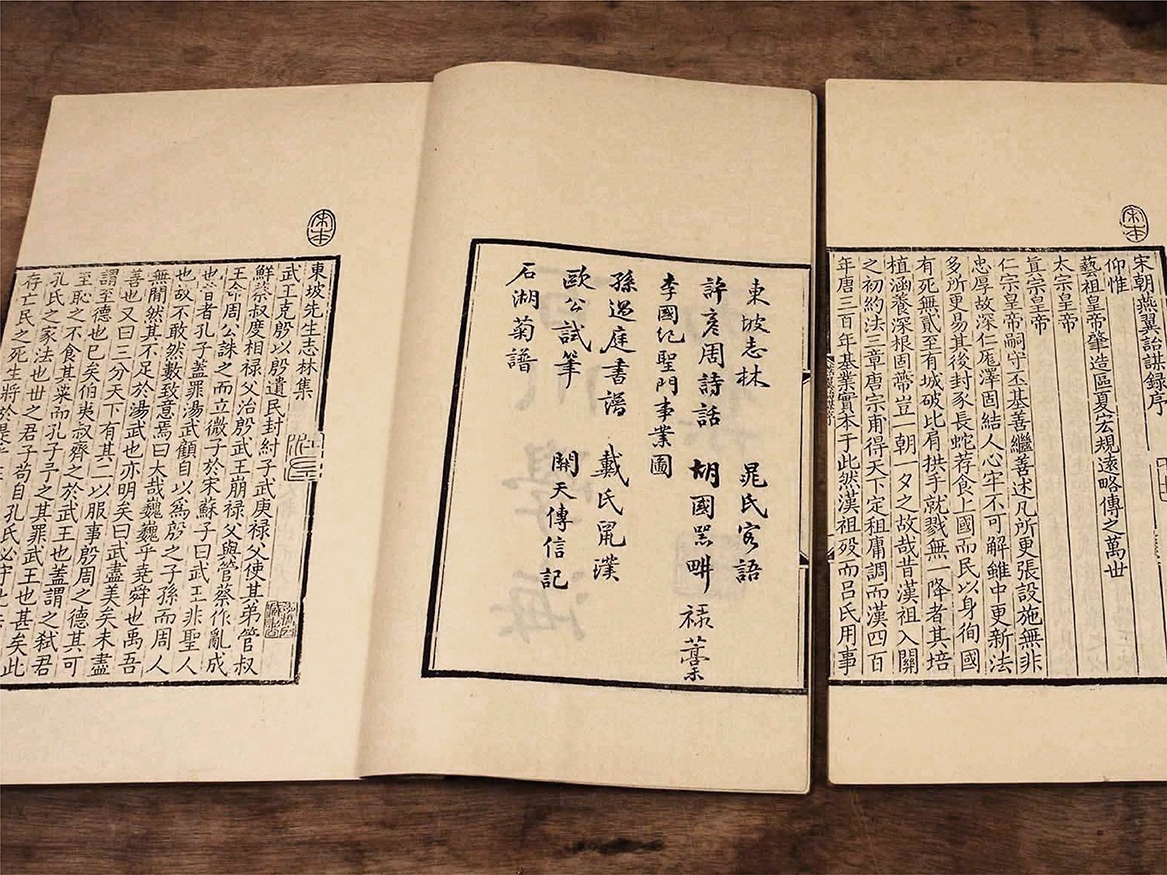 宋本
宋朝燕翼詒謀録序
仰惟
藝祖皇帝肇造區夏宏規遠略傳之萬世
太宗皇帝
真宗皇帝
仁宗皇帝嗣守丕基善繼善述凡所更張設施無非
忠厚故深仁厖澤固結人心牢不可解雖中更新法
多所更易其後封豕長蛇荐食上國而民以身徇國
有死無貳至有城破比肩拱手就戮無一降者其培
植涵養深根固蔕豈一朝一夕之故哉昔漢祖入關
之初約法三章唐宗甫得天下定租庸調而漢四百
年唐三百年基業實本于此然漢祖歿而吕氏用事
東坡志林 晁氏客語
許彥周詩話 胡國器耕禄藁
李國紀聖門事業圖
孫過庭書譜 戴氏鼠璞
歐公試筆 開天傳信記
石湖菊譜
宋本
東坡先生志林集
武王克殷以殷遺民封紂子武庚禄父使其弟管叔
鮮蔡叔度相禄父治殷武王崩禄父與管蔡作亂成
王命周公誅之而立微子於宋蘇子曰武王非聖人
也昔者孔子蓋罪湯武顧自以爲殷之子孫而周人
也故不敢然數致意焉曰大哉巍巍乎堯舜也禹吾
無間然其不足於湯武也亦明矣曰武盡美矣未盡
善也又曰三分天下有其二以服事殷周之德其可
謂至德也已矣伯夷叔齊之於武王也蓋謂之弑君
至恥之不食其粟而孔子予之其罪武王也甚矣此
孔氏之家法也世之君子苟自孔氏必守此
存亡民之死生將於是乎